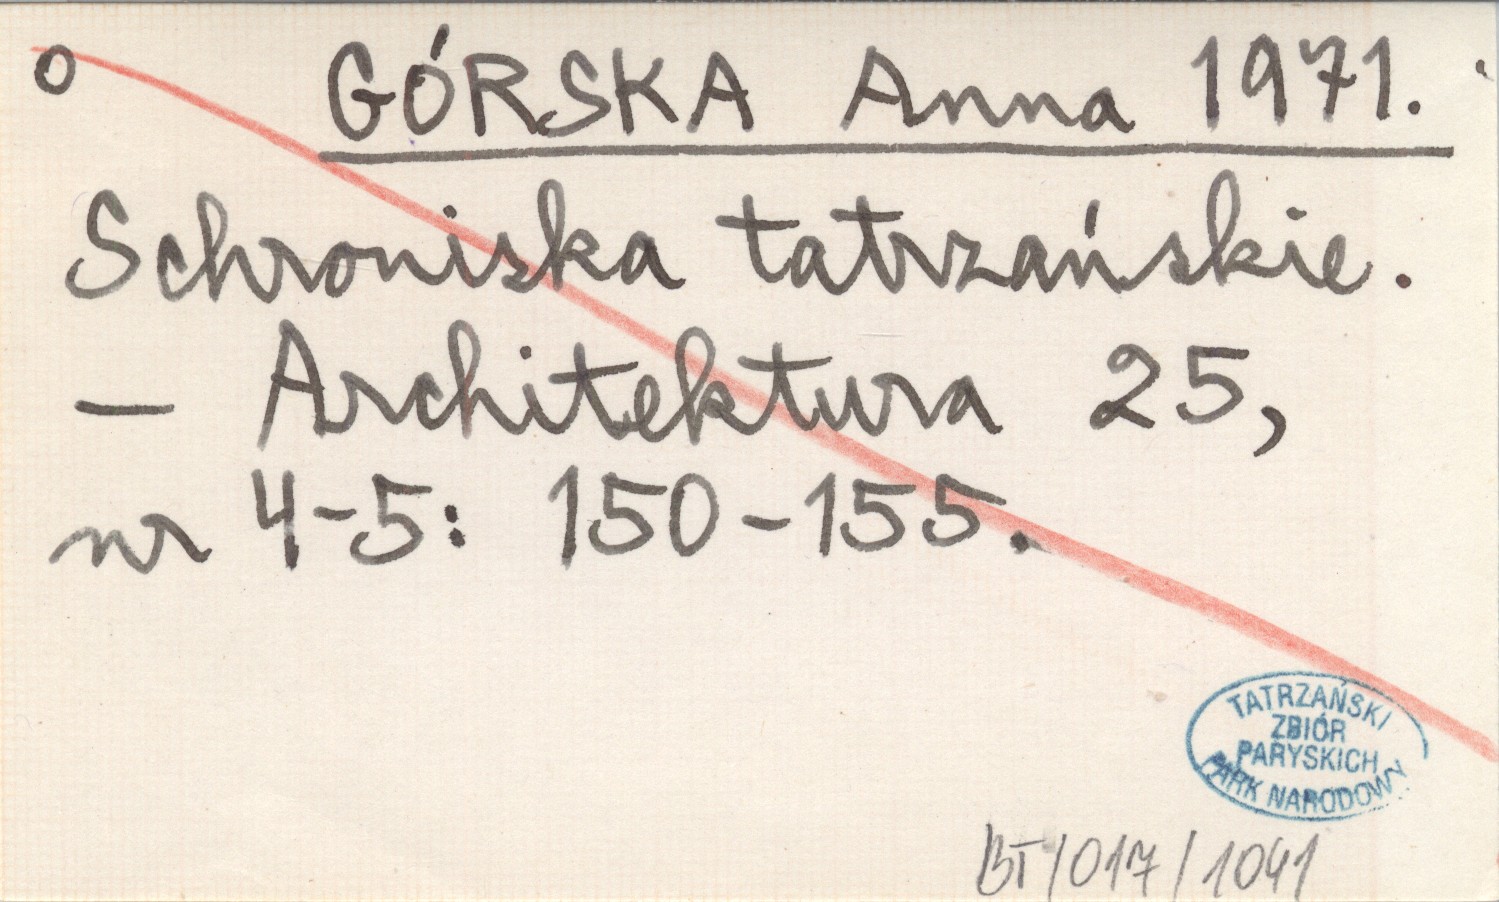 o GÓRSKA Anna 1971.
Schroniska tatrzańskie.
– Architektura 25,
nr 4-5: 150-155.
TATRZAŃSKI
ZBIÓR
PARYSKICH
PARK NARODOWY
BT/017/1041